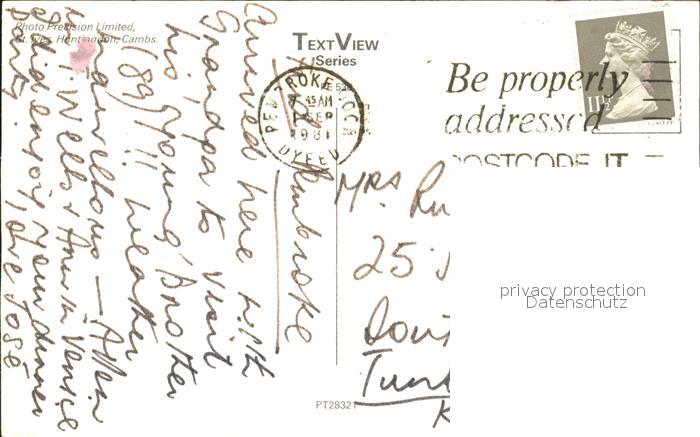 Photo Precision Limited,
St. Ives, Huntingdon, Cambs.
TEXTVIEW
Series
PEMBROKE DOCK
7 45 AM
SEP
1981
DYFED
Be properly
addressed
POSTCODE IT
11½
Pembroke
Arrived here with
Grandpa to visit
his 'young' brother
(89)!! Weather
marvellous — Allen
Wells & Anne in Venice
I did enjoy your dinner
Party. love José
Mrs Ru
25
Tun
K
PT28321
privacy protection
Datenschutz